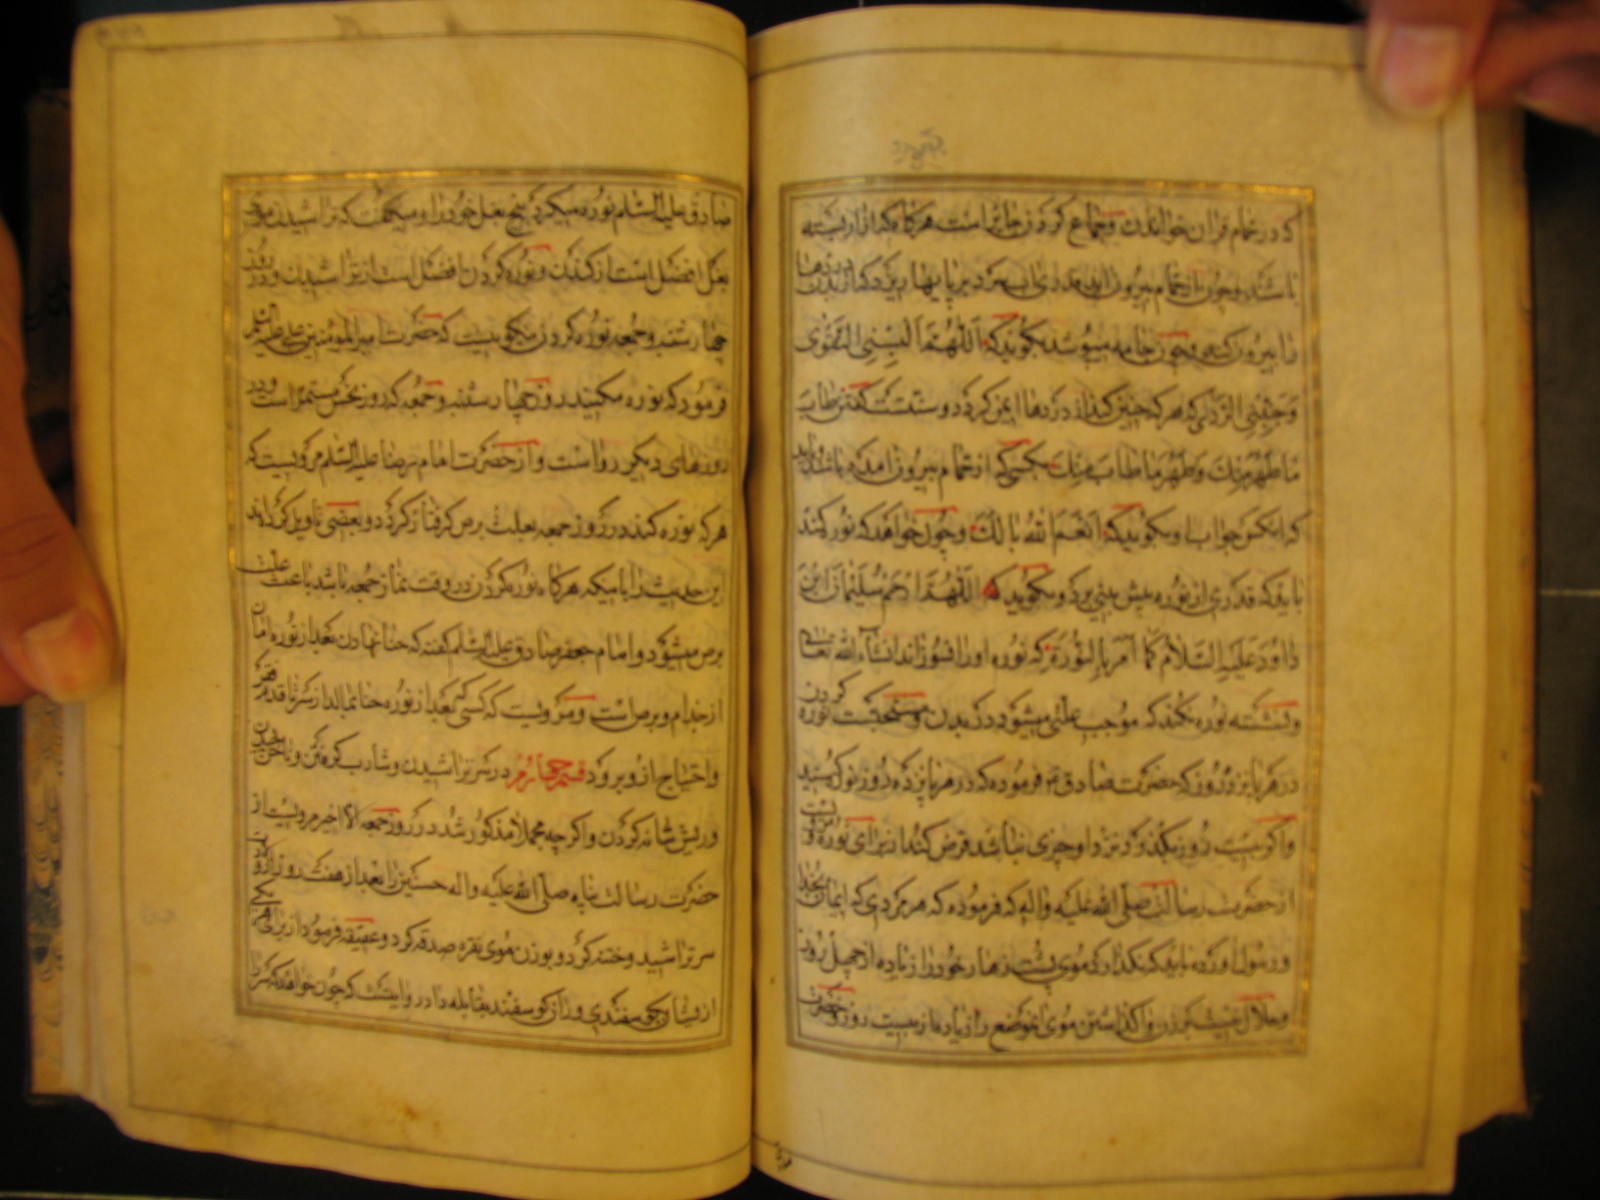 که در حمام قران خواندن و جماع کردن جایز است هرگاه که ازار بسته
باشد و چون از حمام بیرون اید قدری اب سرد بر پایها ریزد که از بدن دردها
را بیرون کند و چون جامه میپوشد بگوید که اَللّٰهُمَّ اَلْبِسْنِی التَّقْوٰی
وَجَنِّبْنِی الرَّدٰی که هر که چنین کند از دردها ایمن گردد و سنتست گفتن طَابَ
مَا طَهُرَ مِنْكَ وَطَهُرَ مَا طَابَ مِنْكَ بکسی که از حمام بیرون امده باشد و باید
که انکس جواب او بگوید که اَنْعَمَ اللهُ بَالَكَ و چون خواهد که نوره کند
باید که قدری از نوره پیش بینی برد و بگوید که اَللّٰهُمَّ ارْحَمْ سُلَیْمَانَ ابْنَ
دَاوُدَ عَلَیْهِ السَّلَامُ کَمَا اَمَرَ بِالنُّورَةِ که نوره او را نسوزاند انشاء الله تعالی
و نشسته نوره نکند که موجب علتی میشود در بدن و مستحبست نوره کردن
در هر پانزده روز که حضرت صادق ع فرموده که در هر پانزده روز نوره کنید
و اگر بیست روز بگذرد و نزد او چیزی نباشد قرض کند از برای نوره و مرویست
از حضرت رسالت صلّی الله علیه واله که فرموده که هر مردی که ایمان بخدا
و رسول اورده باید که نگذارد موی پشت زهار خود را زیاده از چهل روز
و حلال نیست بر زن واگذاشتن موی انموضع را زیاده از بیست روز و حضرت
صادق علیه السلام نوره میکرد بیخ بغل خود را و میگفت که تراشیدن موی
بغل افضل است از کندن و نوره کردن افضل است از تراشیدن و در روز
چهارشنبه و جمعه نوره کردن نیکو نیست که حضرت امیر المومنین علی علیه السلم
فرمود که نوره مکنید روز چهارشنبه و جمعه که روز نحس مستمر است و در
روزهای دیگر رواست و از حضرت امام رضا علیه السلم مرویست که
هر که نوره کند در روز جمعه بعلت برص گرفتار گردد و بعضی تاویل کرده‌اند
این حدیث را باینکه هرگاه نوره کردن در وقت نماز جمعه باشد باعث علت
برص میشود و امام جعفر صادق علیه السلم گفته که حنا نهادن بعد از نوره امان
از جذام و برص است و مرویست که کسی که بعد از نوره حنا بمالد از سر تا قدم فقر
و احتیاج از و برود قسم چهارم در سر تراشیدن و شارب گرفتن و ناخن چیدن
و ریش شانه کردن و اگر چه مجملا مذکور شد در روز جمعه الا اخر مرویست از
حضرت رسالت پناه صلّی الله علیه واله حسنین را بعد از هفت روز از
سر تراشید و ختنه کرد و بوزن موی نقره صدقه کرد و عقیقه فرمود از برای هر یکی
از ایشان گوسفندی و ران گوسفند بقابله داد روایتست که چون خواهد که سر را